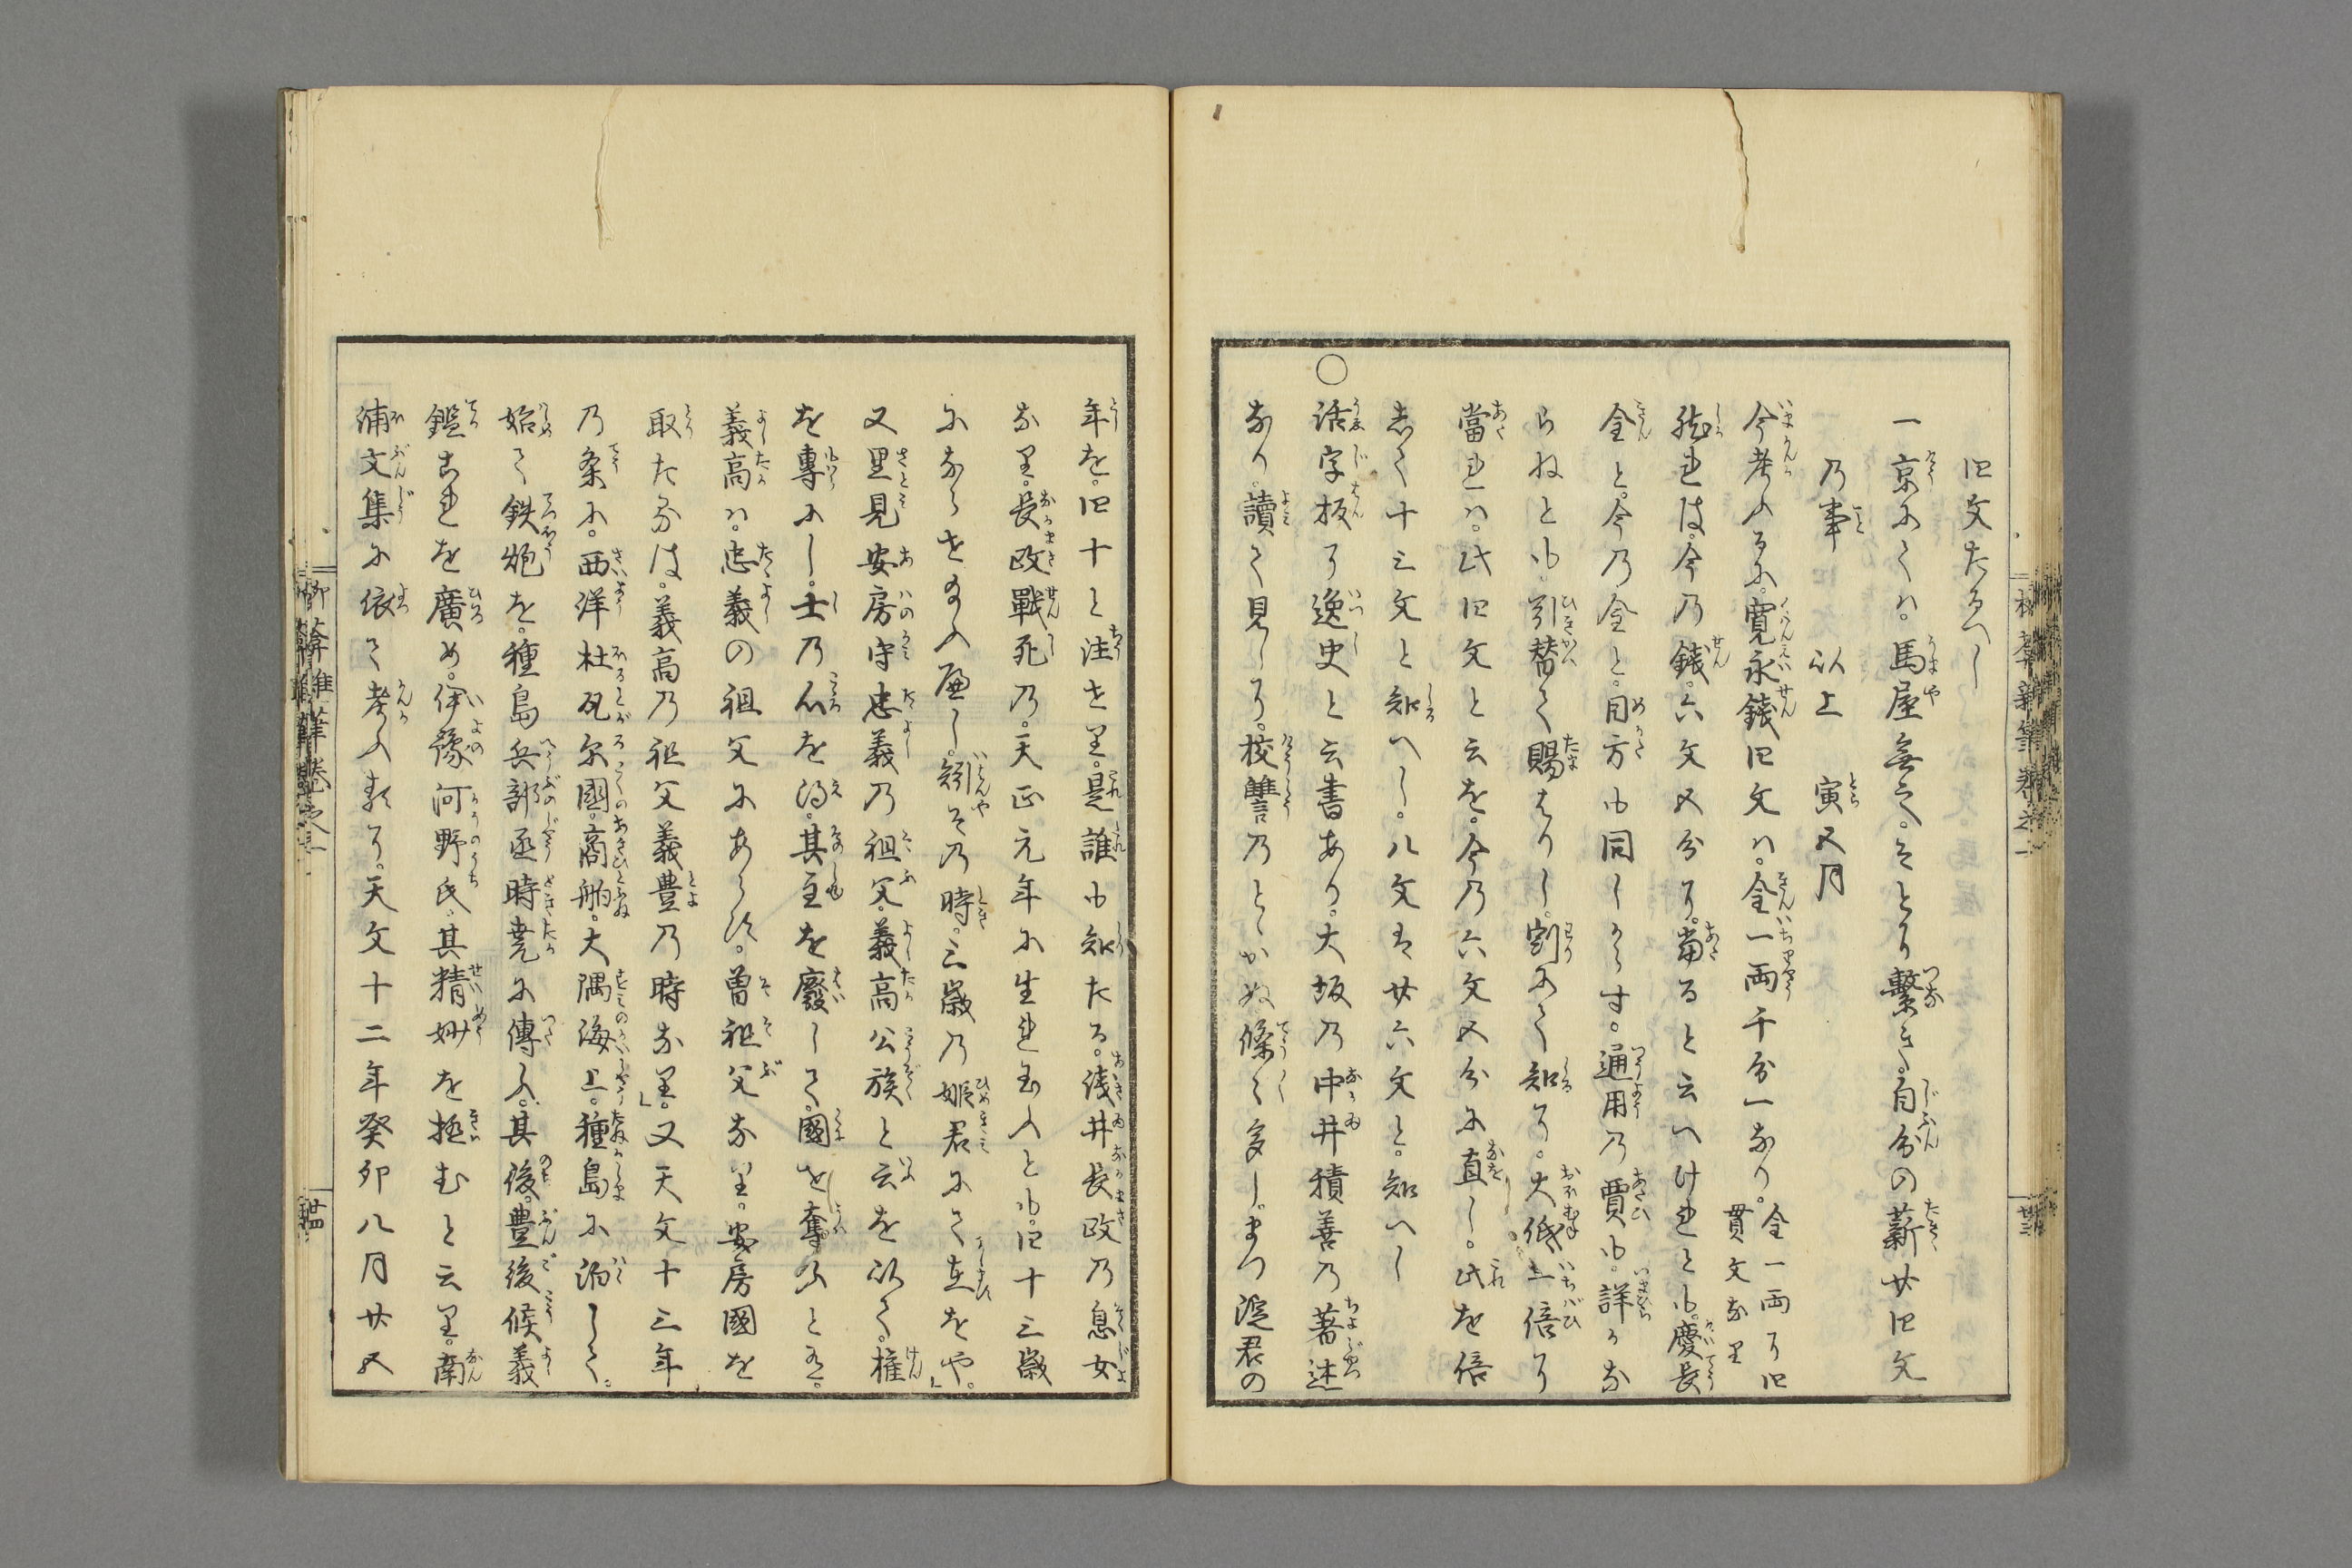 四文たるへし
一京にては。馬屋無之。そとに繋き。自分の薪廿四文
の事　以上　寅五月
今考ふるに。寛永銭四文ハ。金一両千分一なり。金一両ハ四
貫文なり
然れは。今の銭。六文五分に。當ると云へけれとも。慶長
金と。今の金と。目方も同しからす。通用の賈も。詳かな
らねとも。引替て賜はりし。割にて知に。大低一倍に
當れハ。此四文と云を。今の六文五分に直し。此を倍
して十三文と知へし。八文は廿六文と。知へし
〇活字板に逸史と云書あり。大坂の中井積善の著述
なり。讀て見しに。校讐のとゝかぬ條々多し。まつ淀君の
年を。四十と注せり。是誰も知たる。浅井長政の息女
なり。長政戰死の。天正元年に生れ給ふとも。四十三歳
にならせ給ふ應し。矧その時。三歳の姫君にて在をや。
又里見安房守忠義の祖父。義高公族と云を以て。権
を專にし。士の心を得。其主を廢して。國を奪ふと有。
義高ハ。忠義の祖父にあらす。曽祖父なり。安房國を
取たるは。義高の祖父義豊の時なり。又天文十三年
の条に。西洋杜瓦尓國。商舶。大隅海上。種島に泊して。
始て鉄炮を。種島兵部丞時堯に傳ふ。其後。豊後候義
鑑これを廣め。伊豫河野氏。其精妙を極むと云り。南
浦文集に依て考ふるに。天文十二年癸卯八月廿五
梅菴雑筆巻之一
廿三
廿四